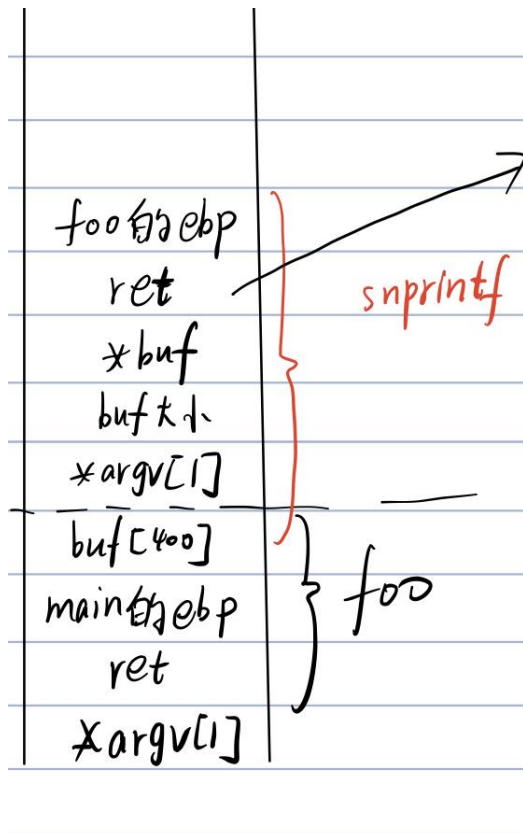 foo的ebp
ret
snprintf
*buf
buf大小
*argv[1]
buf[400]
foo
main的ebp
ret
*argv[1]